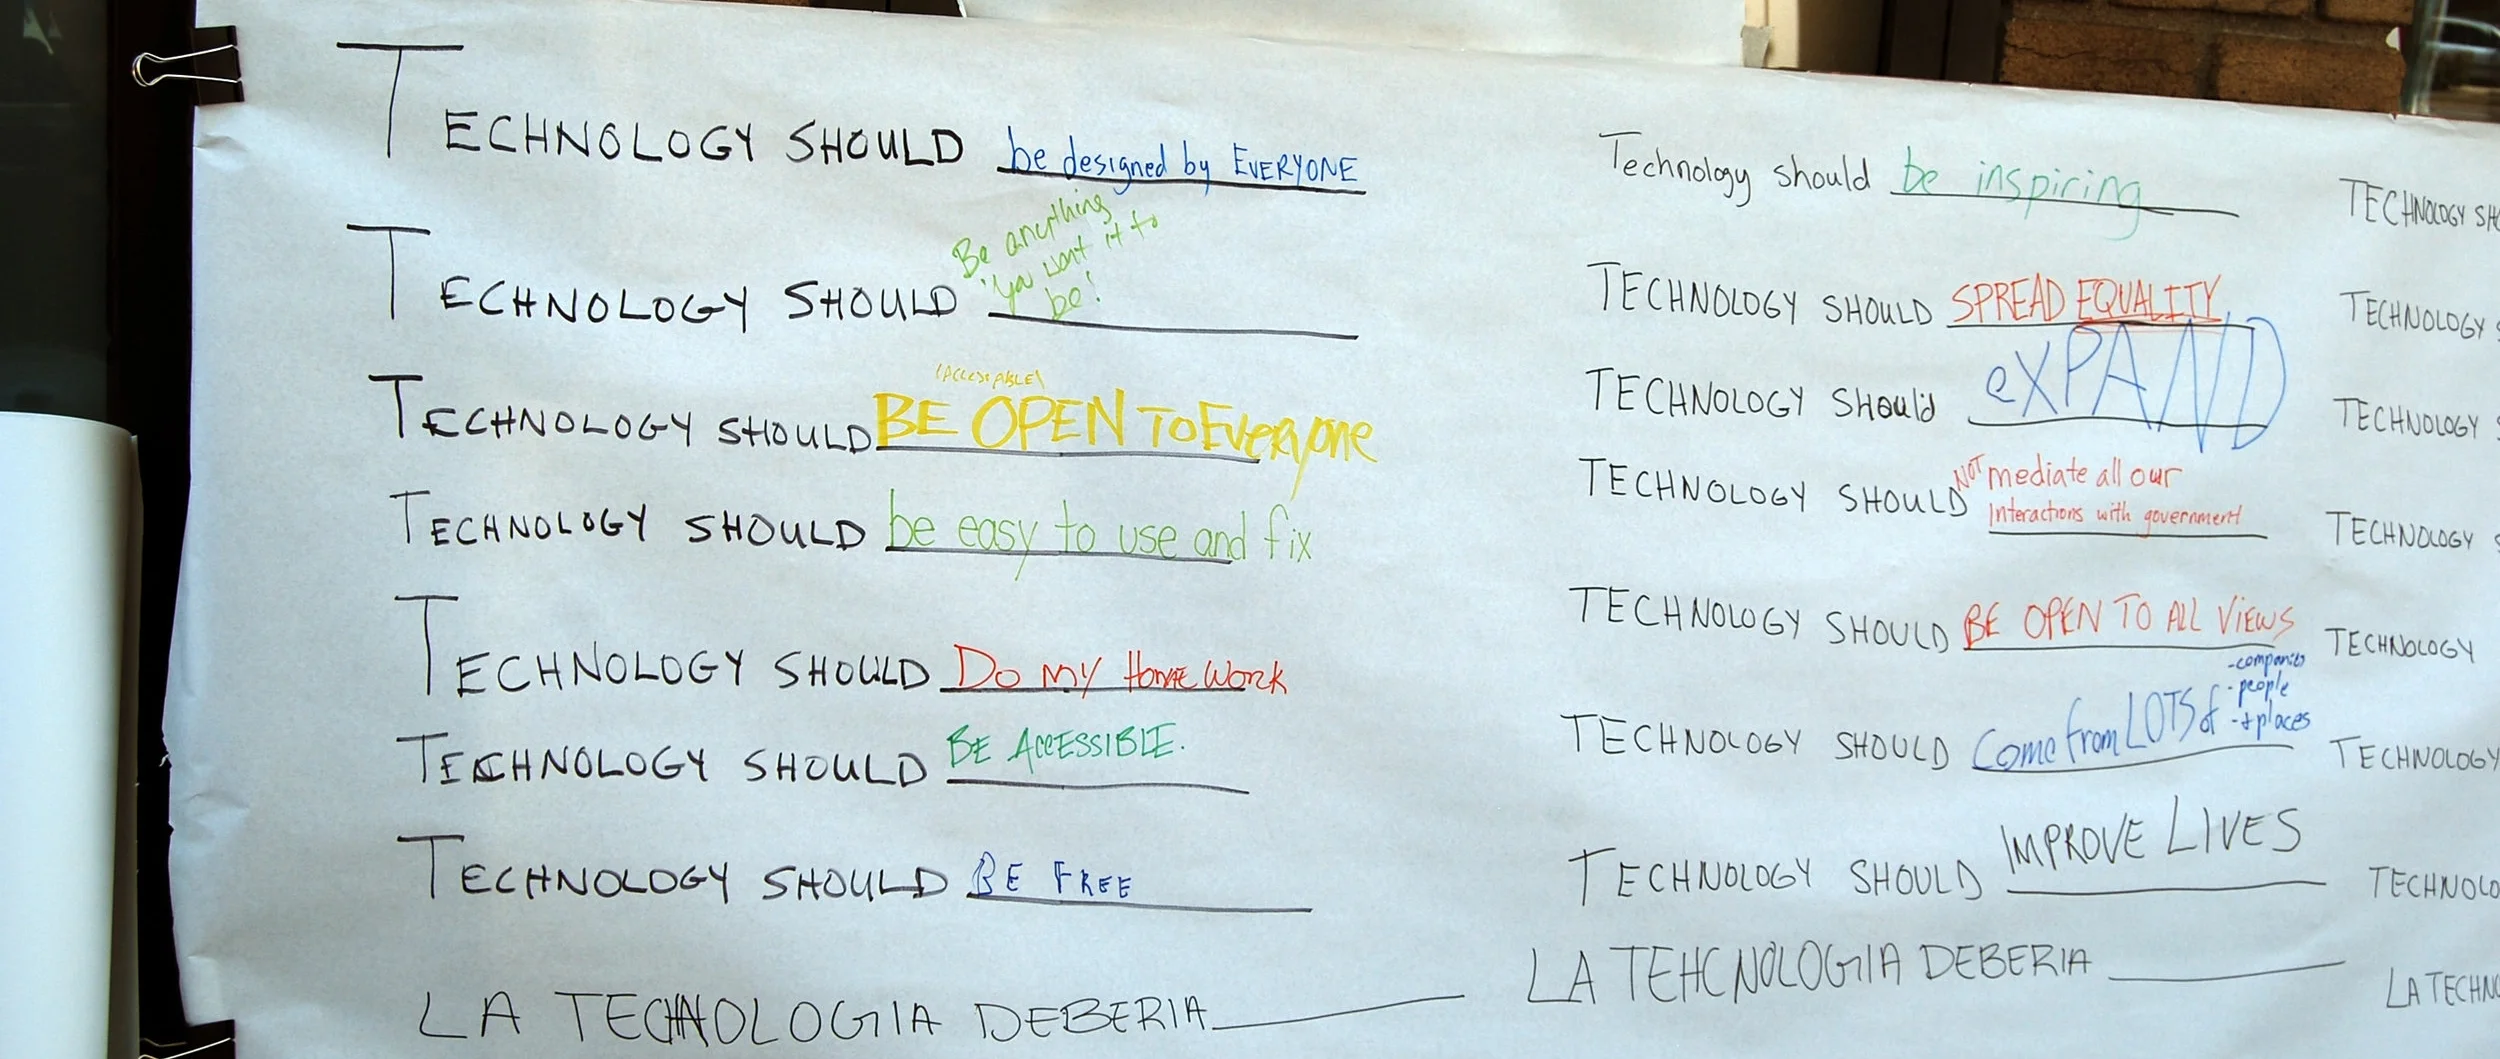 TECHNOLOGY SHOULD be designed by EVERYONE
TECHNOLOGY SHOULD Be anything you want it to be!
(ACCESSABLE)
TECHNOLOGY SHOULD BE OPEN TO EVERYONE
TECHNOLOGY SHOULD be easy to use and fix
TECHNOLOGY SHOULD DO MY HOMEWORK
TECHNOLOGY SHOULD BE ACCESSIBLE.
TECHNOLOGY SHOULD BE FREE
LA TECHNOLOGIA DEBERIA
Technology should be inspiring
TECHNOLOGY SHOULD SPREAD EQUALITY
TECHNOLOGY Should eXPAND
TECHNOLOGY SHOULD NOT mediate all our
Interactions with government
TECHNOLOGY SHOULD BE OPEN TO ALL VIEWS
TECHNOLOGY SHOULD Come from LOTS of
-companies
-people
-+places
TECHNOLOGY SHOULD IMPROVE LIVES
LA TEHCNOLOGIA DEBERIA
TECHNOLOGY SH
TECHNOLOGY S
TECHNOLOGY S
TECHNOLOGY S
TECHNOLOGY
TECHNOLOGY
TECHNOLO
LA TECHNO